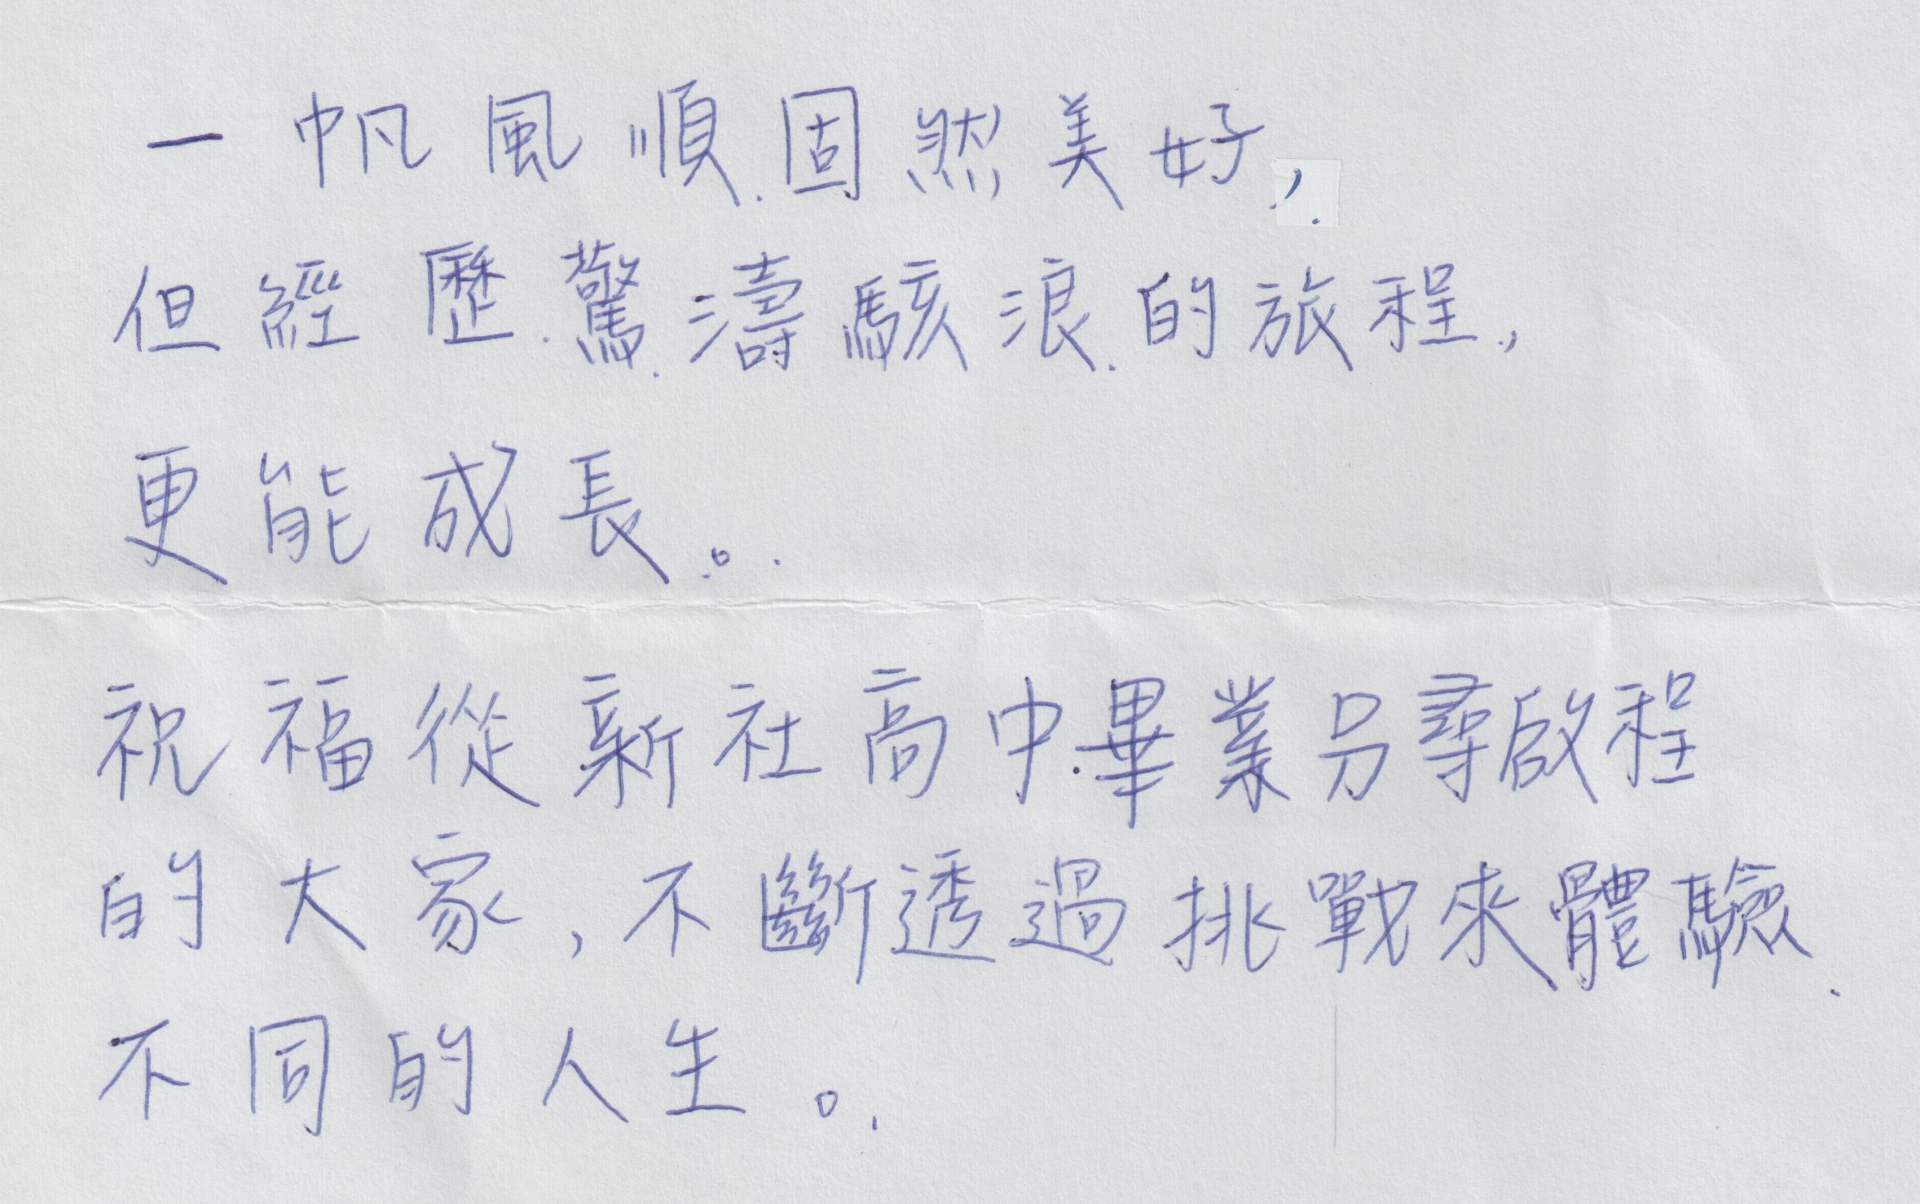 一帆風順固然美好，
但經歷驚濤駭浪的旅程，
更能成長。
祝福從新社高中畢業另尋啟程
的大家，不斷透過挑戰來體驗
不同的人生。